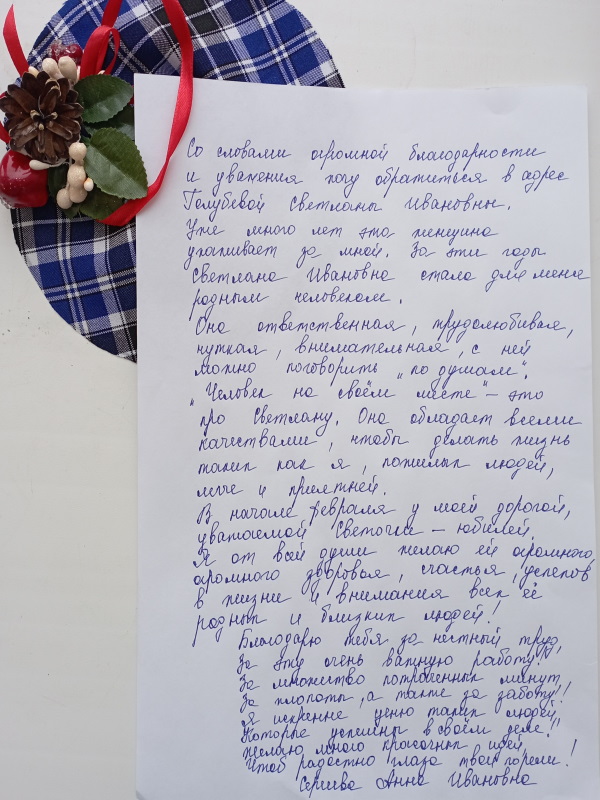 Со словами огромной благодарности
и уважения хочу обратиться в адрес
Голубевой Светланы Ивановны.
Уже много лет эта женщина
ухаживает за мной. За эти годы
Светлана Ивановна стала для меня
родным человеком.
Она ответственная, трудолюбивая,
чуткая, внимательная, с ней
можно поговорить „по душам".
„Человек на своём месте" – это
про Светлану. Она обладает всеми
качествами, чтобы делать жизнь
таких как я, пожилых людей,
легче и приятней.
В начале февраля у моей дорогой,
уважаемой Светочки – юбилей.
Я от всей души желаю ей огромного,
огромного здоровья, счастья, успехов
в жизни и внимания всех её
родных и близких людей!
Благодарю тебя за честный труд,
За эту очень важную работу!
За множество потраченных минут,
За хлопоты, а также за заботу!
Я искренне ценю таких людей,
Которые успешны в своём деле!
Желаю много красочных идей,
Чтоб радостно глаза твои горели!
Сергиева Анна Ивановна